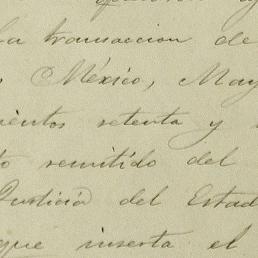 la transaccion de
México, May
ientos setenta y
to remitido del
Justicia del Estad
que inserta el